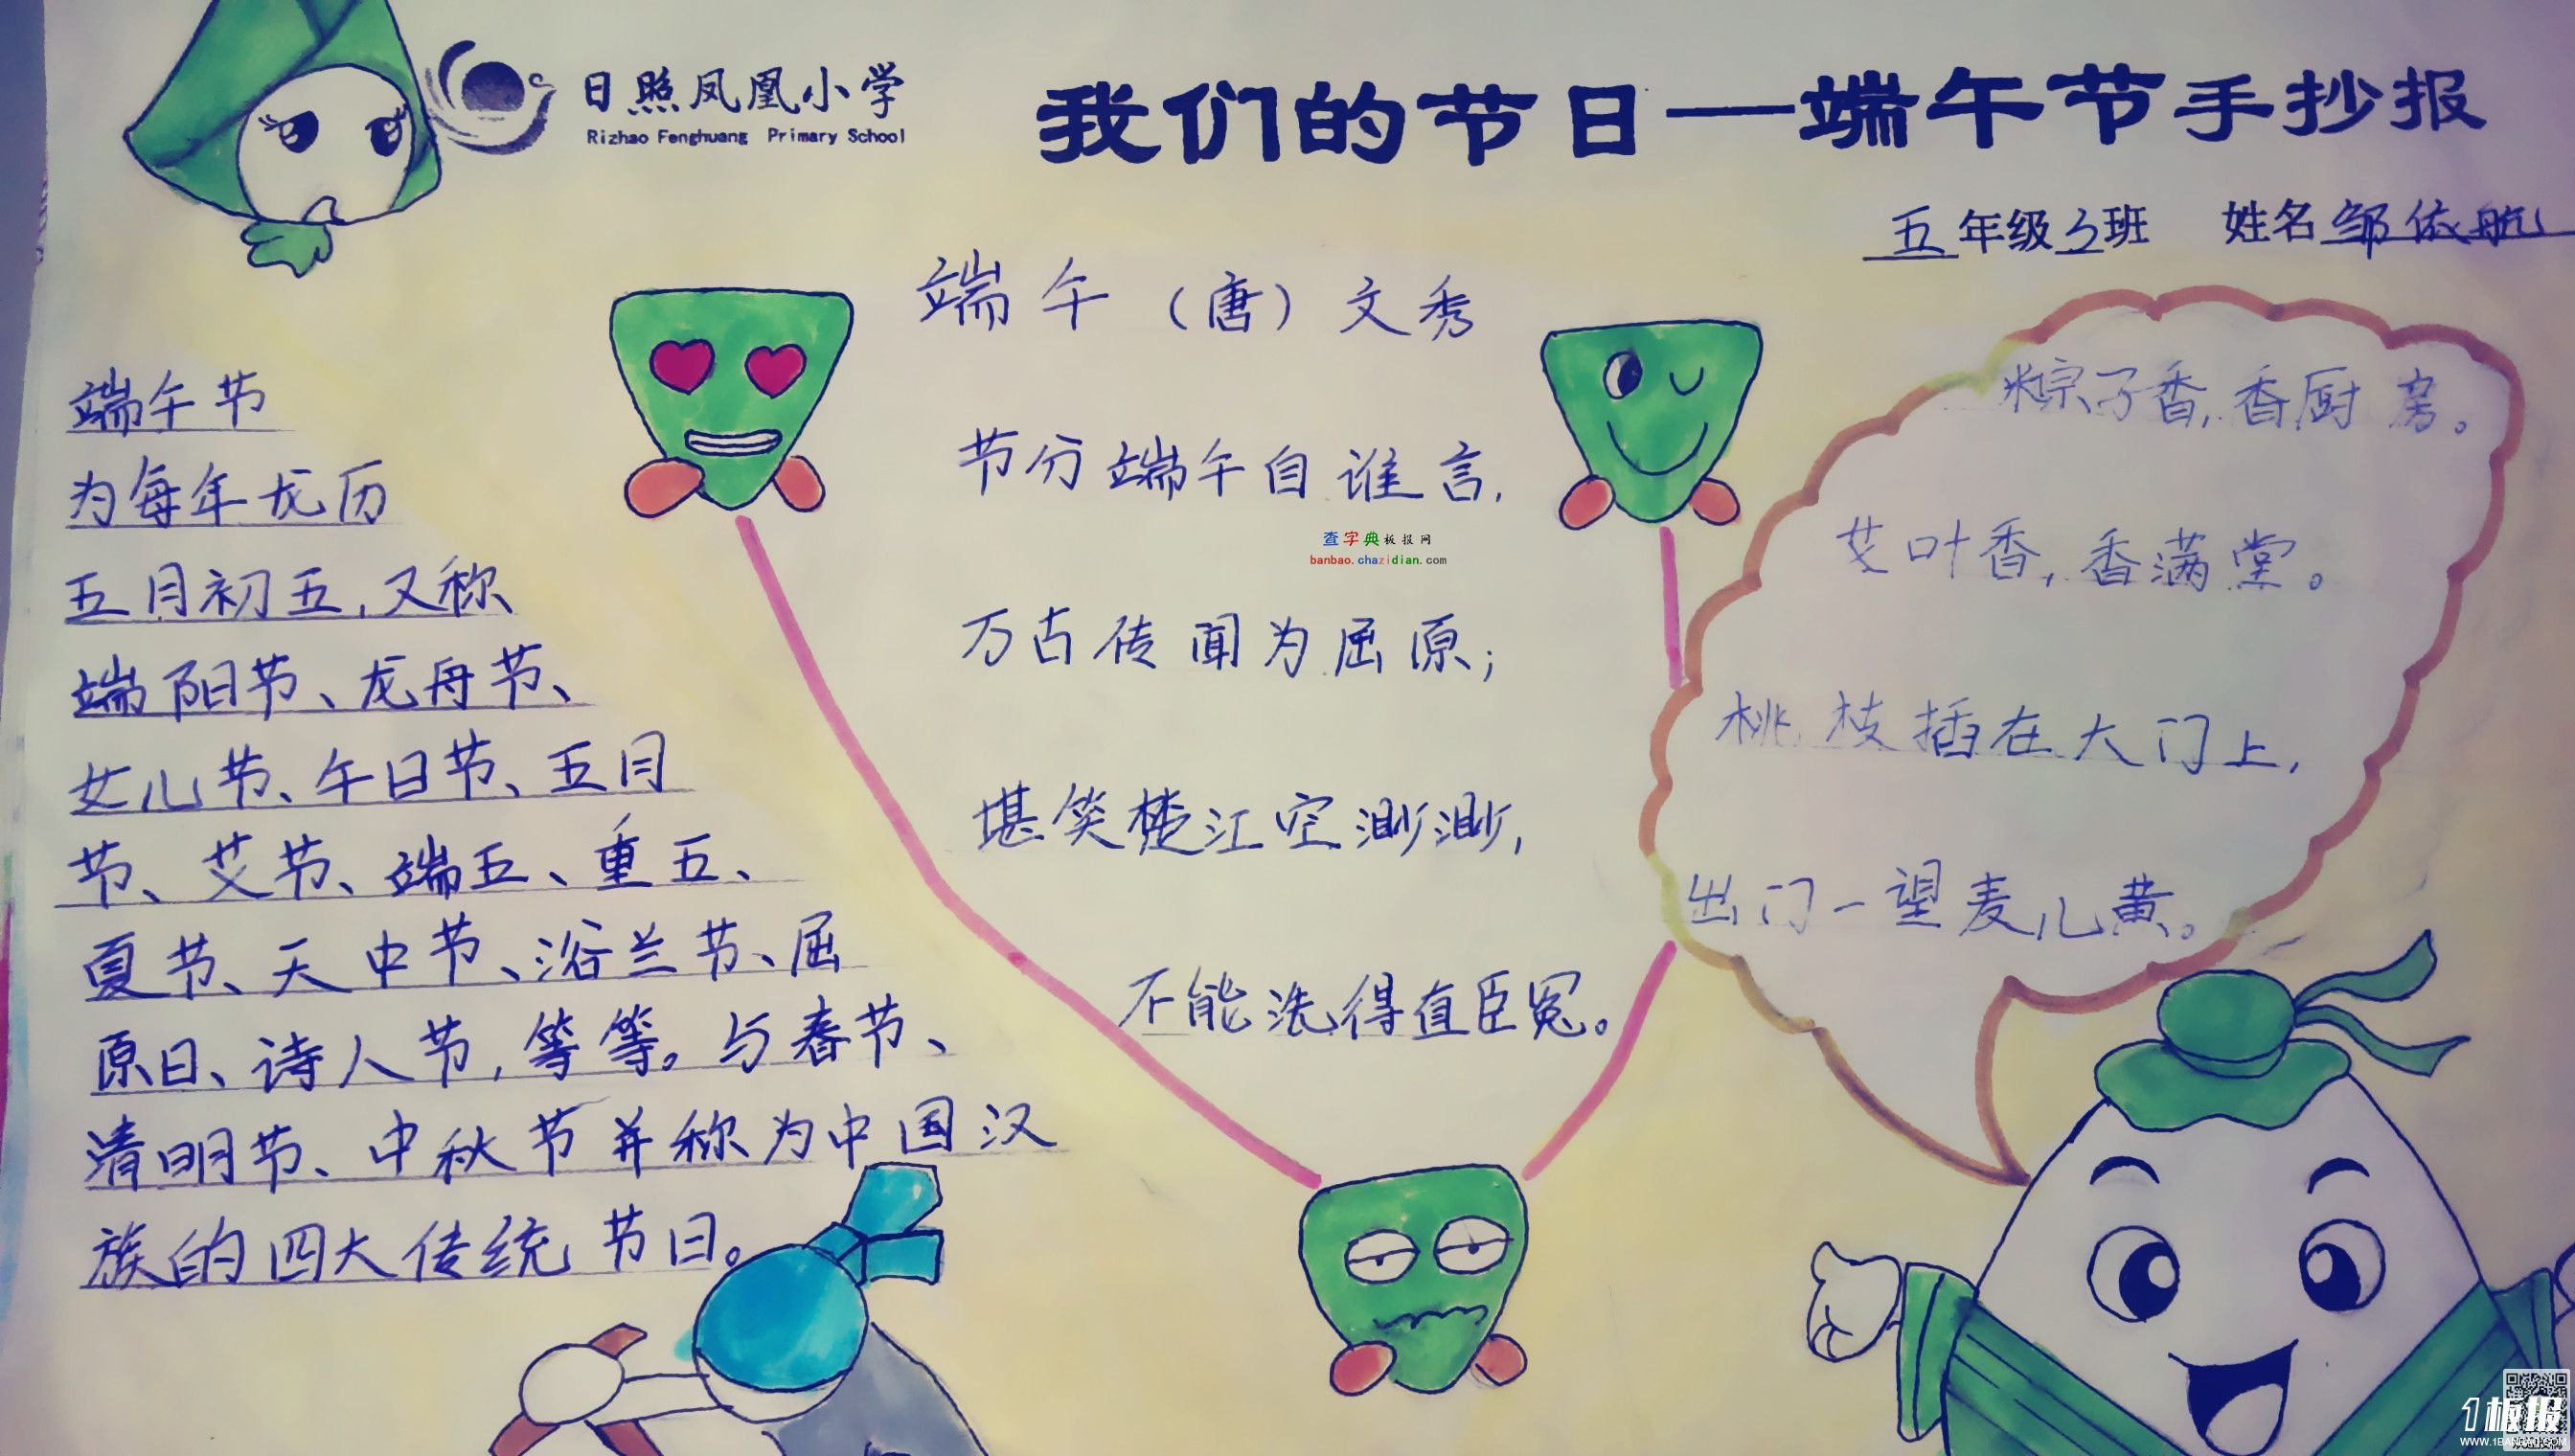 日照凤凰小学
Rizhao Fenghuang Primary School
我们的节日—端午节手抄报
五年级3班 姓名邹依航
端午节
为每年龙历
五月初五,又称
端阳节、龙舟节、
女儿节、午日节、五月
节、艾节、端五、重五、
夏节、天中节、浴兰节、屈
原日、诗人节,等等。与春节、
清明节、中秋节并称为中国汉
族的四大传统节日。
端午(唐)文秀
节分端午自谁言,
万古传闻为屈原;
堪笑楚江空渺渺,
不能洗得直臣冤。
粽子香,香厨房。
艾叶香,香满堂。
桃枝插在大门上,
出门一望麦儿黄。
查字典板报网
banbao.chazidian.com
1板报
WWW.1BANBAO.COM